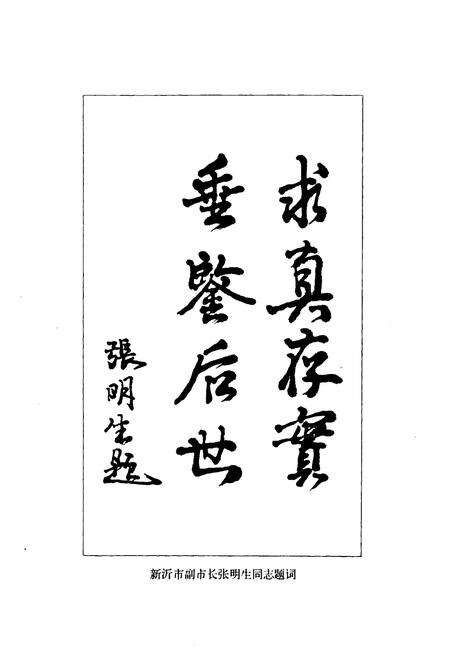 求真存實
垂鑒后世
張明生题
新沂市副市长张明生同志题词